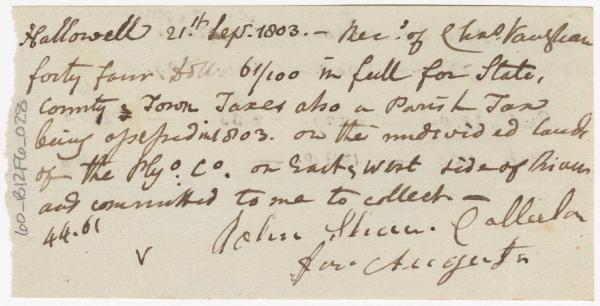 Hallowell 21st Sep. 1803. — Rec.d of Chas. Vaughan
forty four Doll. 61/100 in full for State,
County & Town Taxes also a Parish Tax
being assessed in 1803. on the undevided lands
of the Plyo. Co. on East & West side of River
and committed to me to collect —
44.61 John Shaw. Collector
for Augusta
V
60_B12F6_028